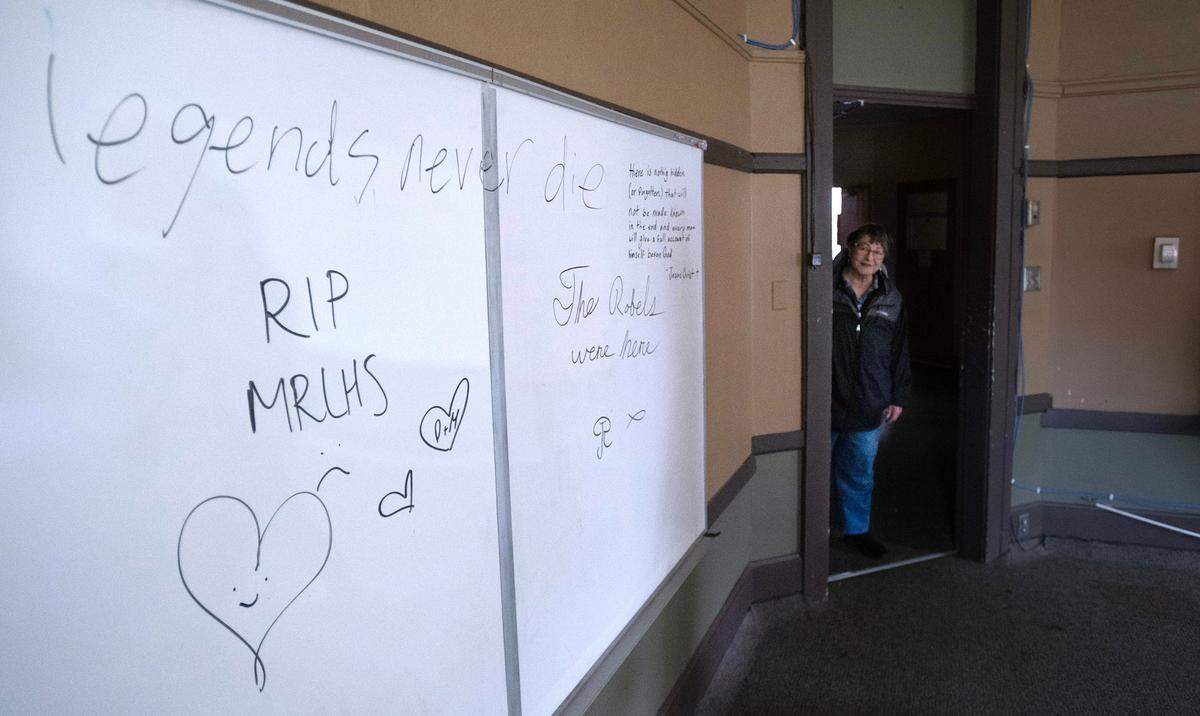 legends never die
there is nothing hidden
(or forgotten) that will
not be made known
in the end and every man
will give a full account of
himself before God
- Jesus Christ †
RIP
MRLHS
D+M
The Rebels
were here
R